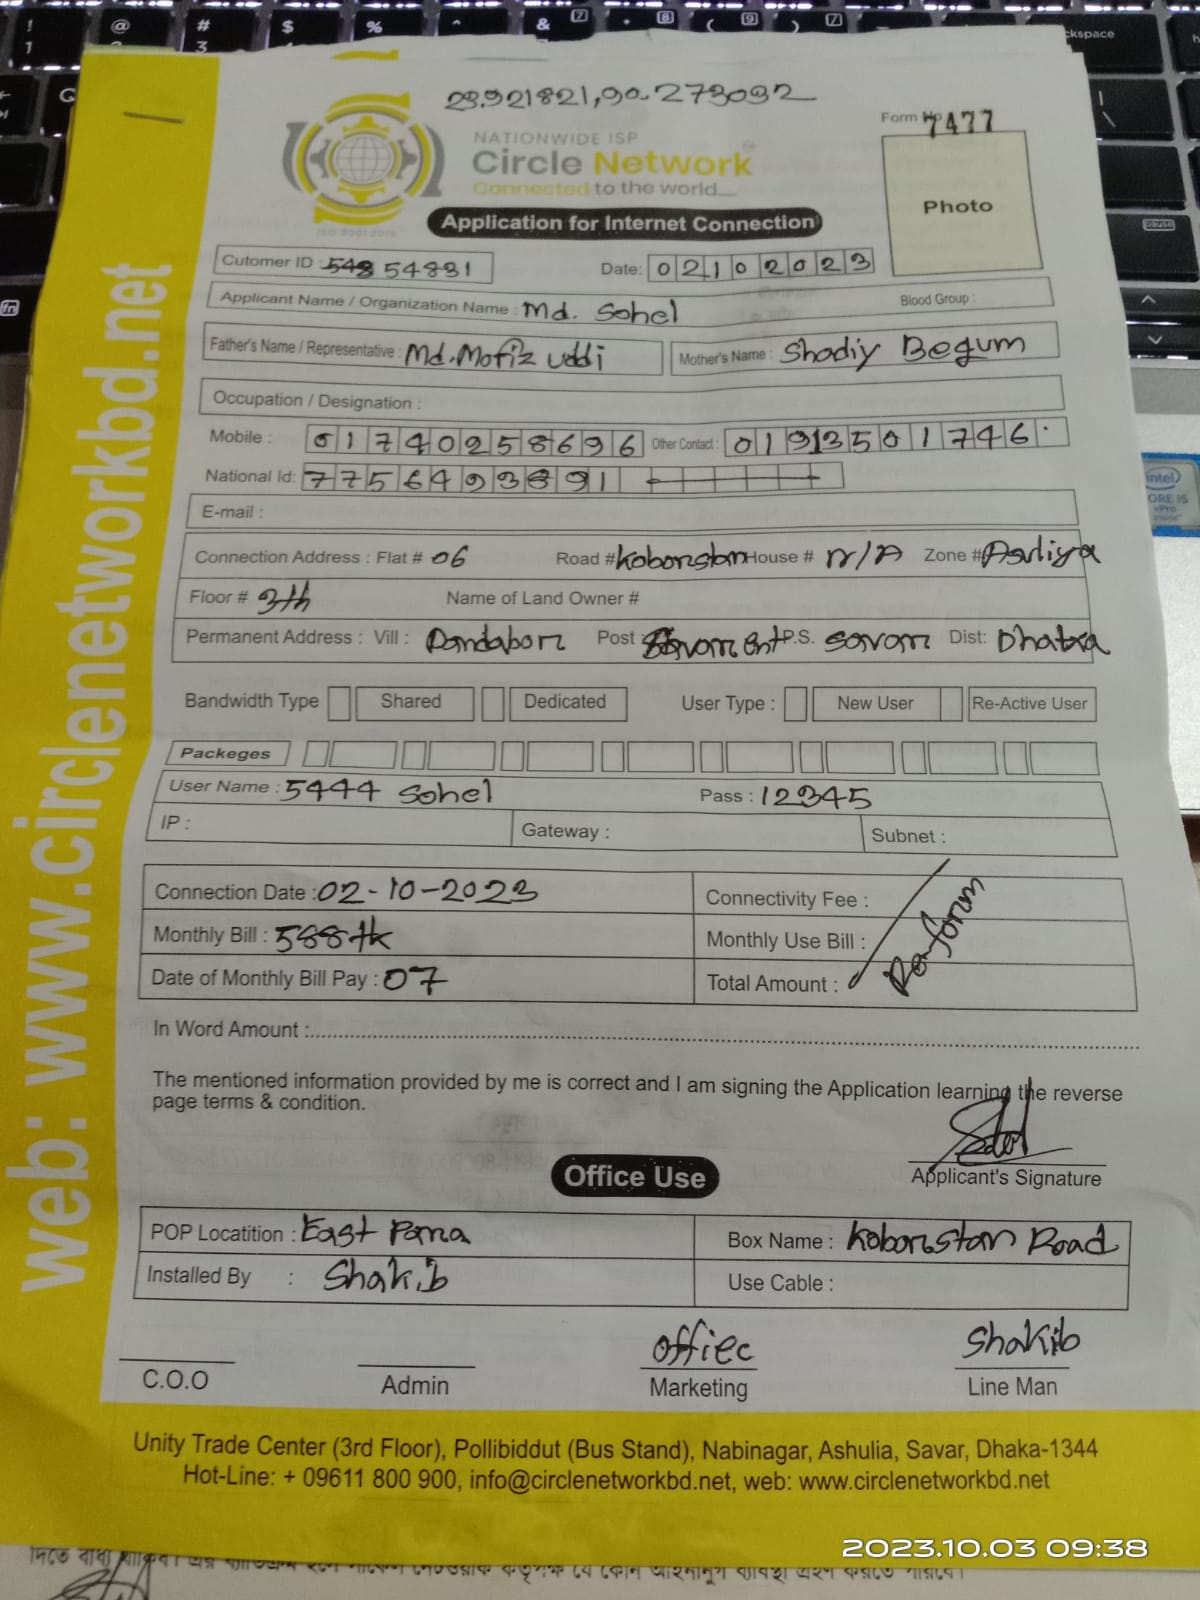 23.921821,90.273092
Form No 7477
NATIONWIDE ISP
Circle Network
Connected to the world....
ISO 9001:2015
Photo
Application for Internet Connection
Cutomer ID : 54831 Date: 02102023
Applicant Name / Organization Name : Md. Sohel Blood Group :
Father's Name / Representative : Md. Mofiz Uddi Mother's Name : Shadiy Begum
Occupation / Designation :
Mobile : 01740258696 Other Contact : 01913501746
National Id: 7756493891
E-mail :
Connection Address : Flat # 06 Road # Koborstan House # N/A Zone # Asuliya
Floor # 3th Name of Land Owner #
Permanent Address : Vill : Dandabor Post : P.S. Savar Dist: Dhaka
Bandwidth Type Shared Dedicated User Type : New User Re-Active User
Packeges
User Name : 5444 Sohel Pass : 12345
IP : Gateway : Subnet :
Connection Date : 02-10-2023 Connectivity Fee :
Monthly Bill : 588 tk Monthly Use Bill :
Date of Monthly Bill Pay : 07 Total Amount :
In Word Amount :
The mentioned information provided by me is correct and I am signing the Application learning the reverse
page terms & condition.
Applicant's Signature
Office Use
POP Locatition : East Para Box Name : Koborstan Road
Installed By : Shakib Use Cable :
offiec Shakib
C.O.O Admin Marketing Line Man
Unity Trade Center (3rd Floor), Pollibiddut (Bus Stand), Nabinagar, Ashulia, Savar, Dhaka-1344
Hot-Line: + 09611 800 900, info@circlenetworkbd.net, web: www.circlenetworkbd.net
web: www.circlenetworkbd.net
2023.10.03 09:38